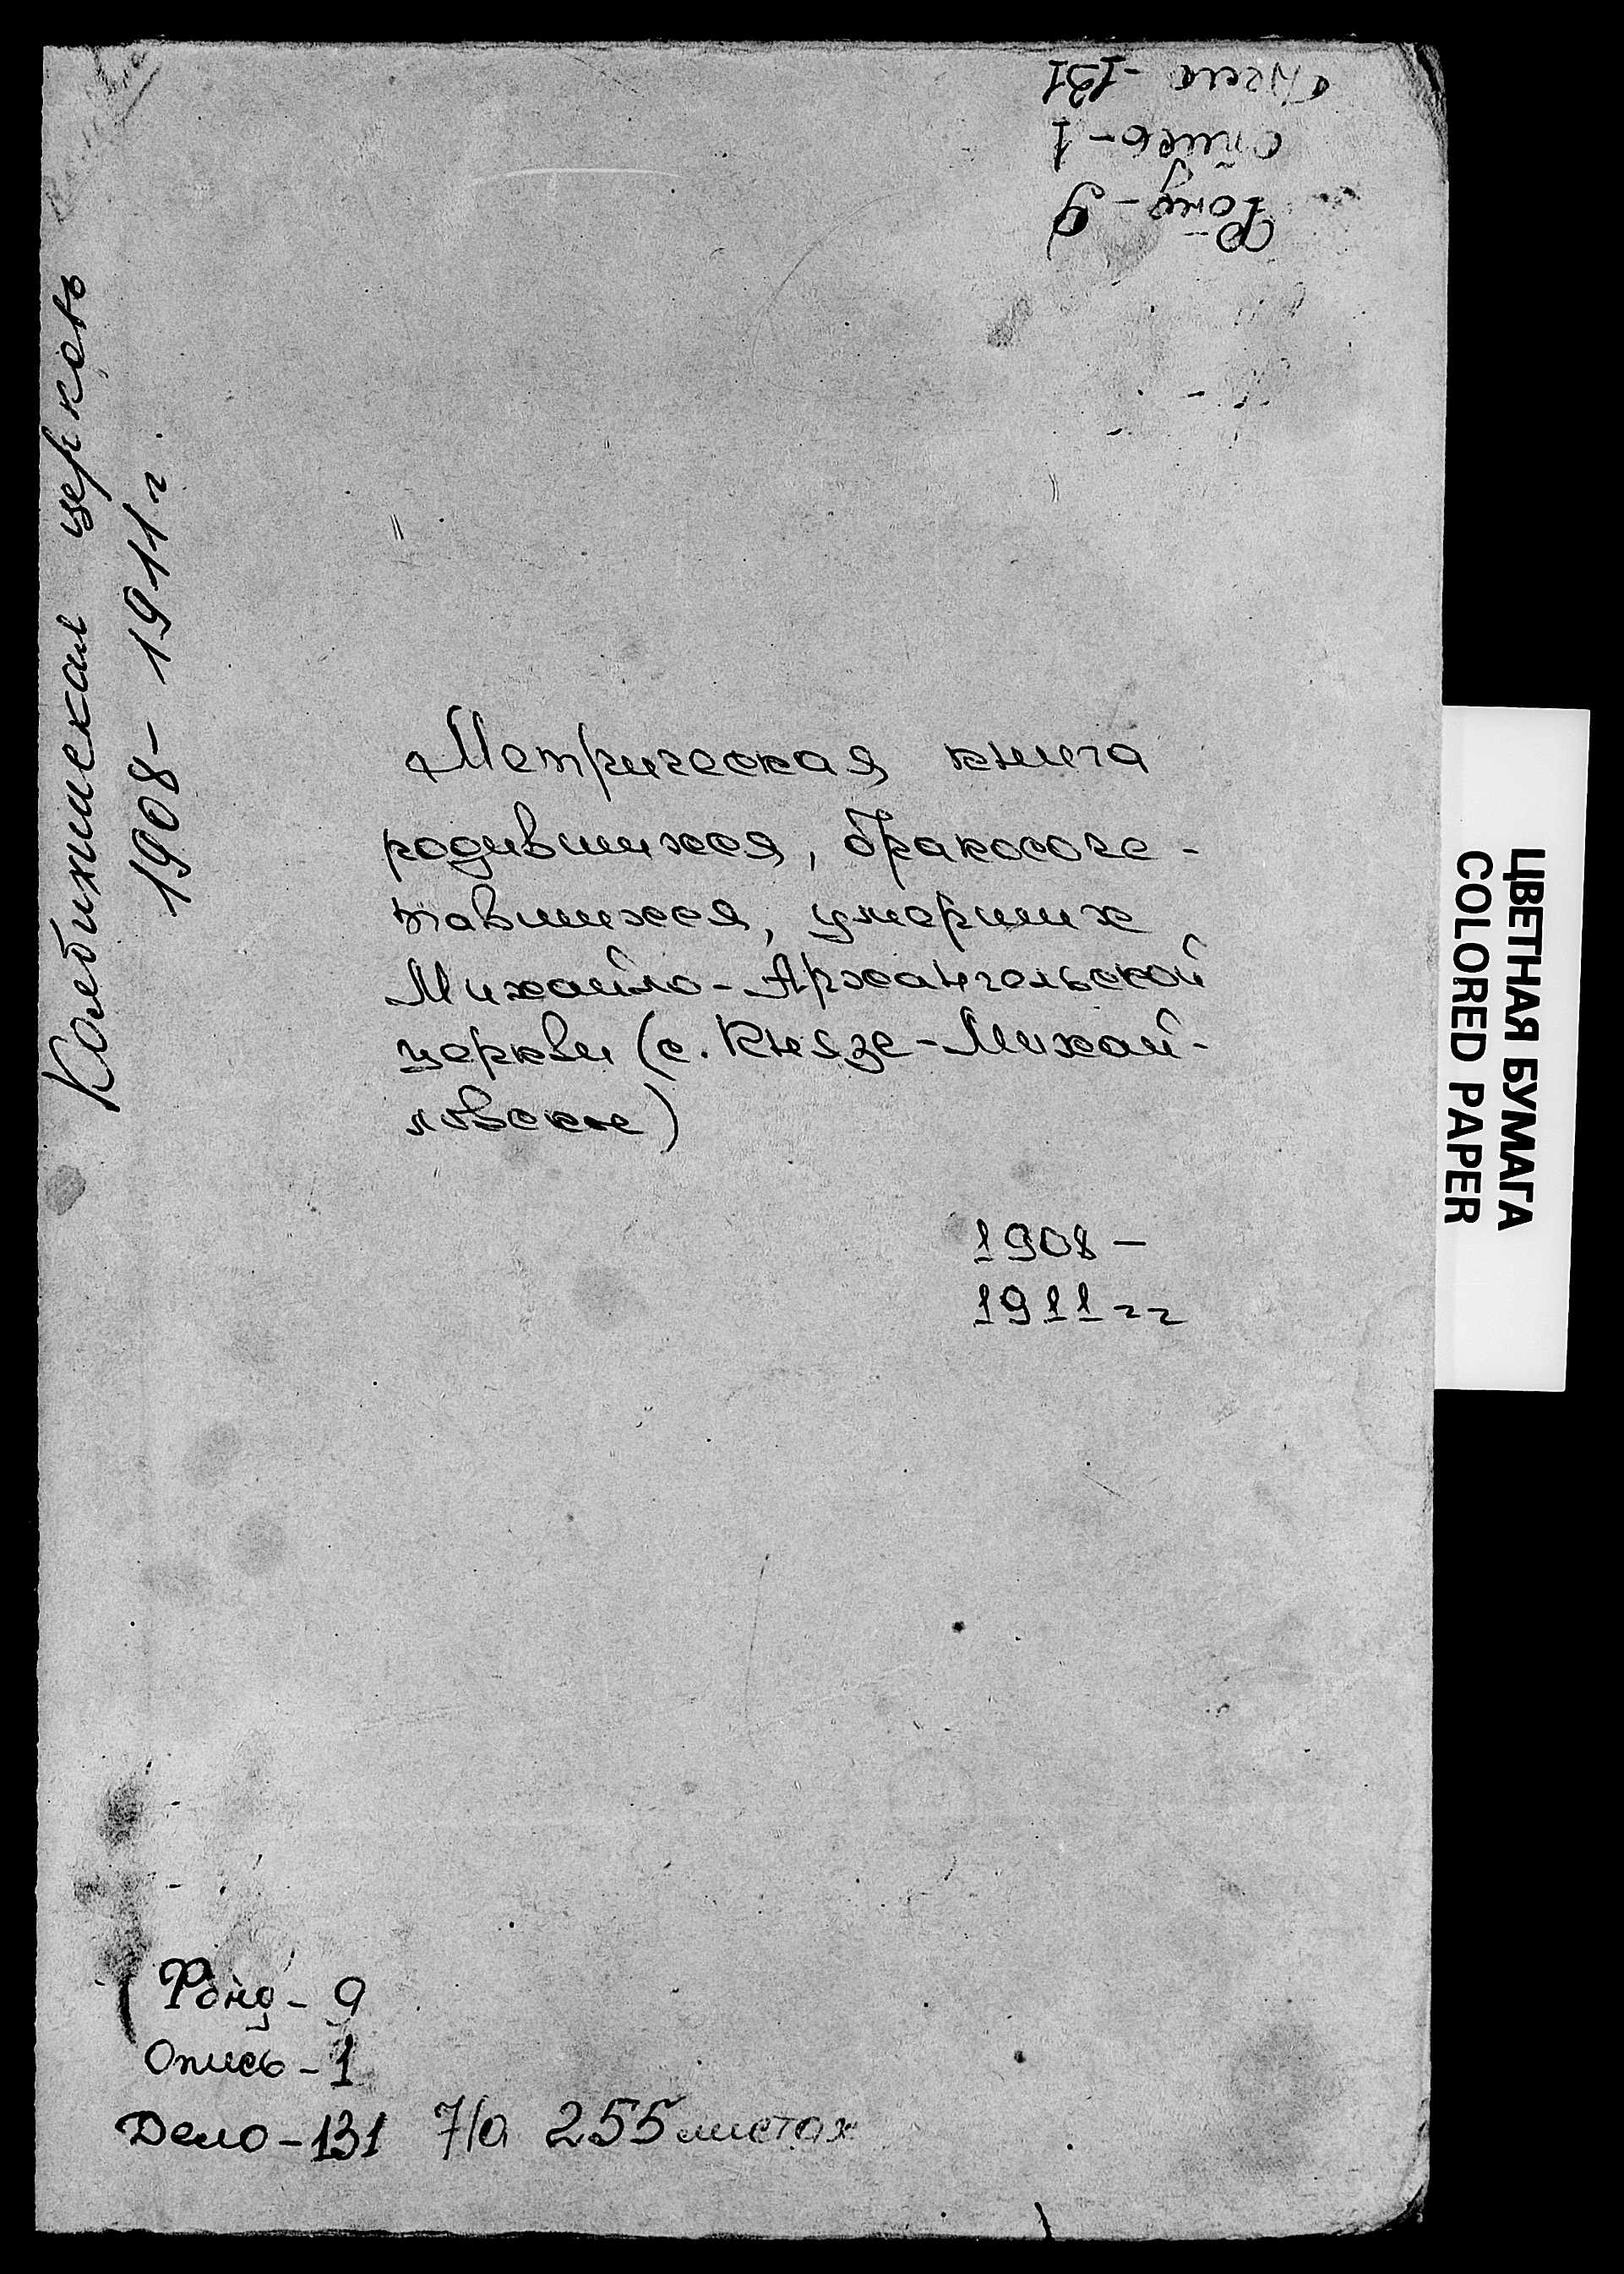 Дело - 131
Опись - 1
Фонд - 9
Колбихинская церковь
1908 - 1911 г.
Метрическая книга
родившихся, бракосоче-
тавшихся, умерших
Михайло-Архангельской
церкви (с. Князе-Михай-
ловское)
1908 -
1911 гг
ЦВЕТНАЯ БУМАГА
COLORED PAPER
Фонд - 9
Опись - 1
Дело - 131 255 листах